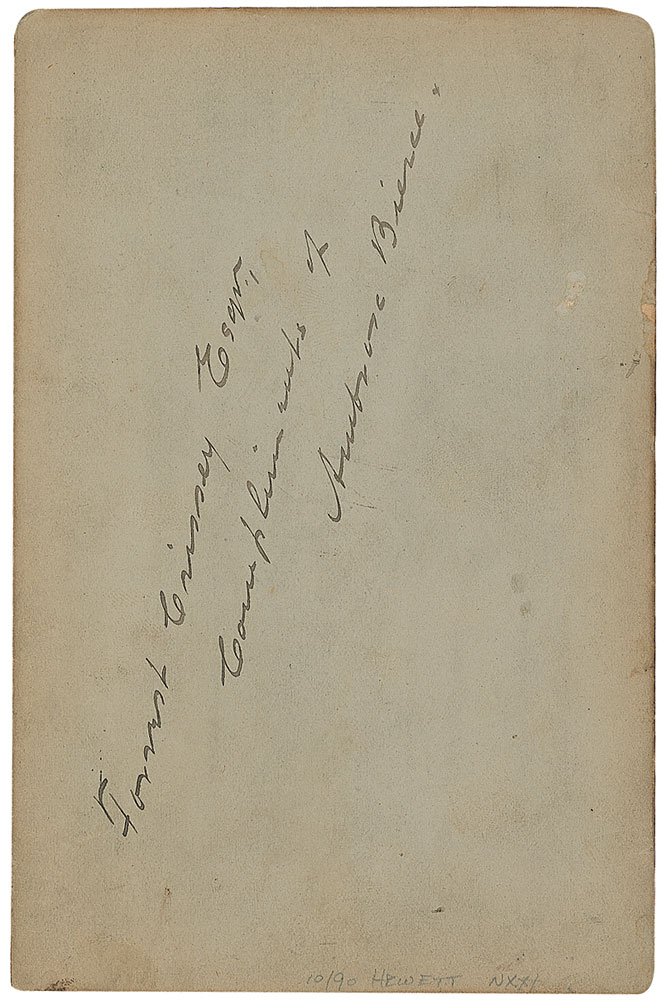 Forrest Crissey Esqr,
Compliments of
Ambrose Bierce.
10/90 HEWETT NXX/